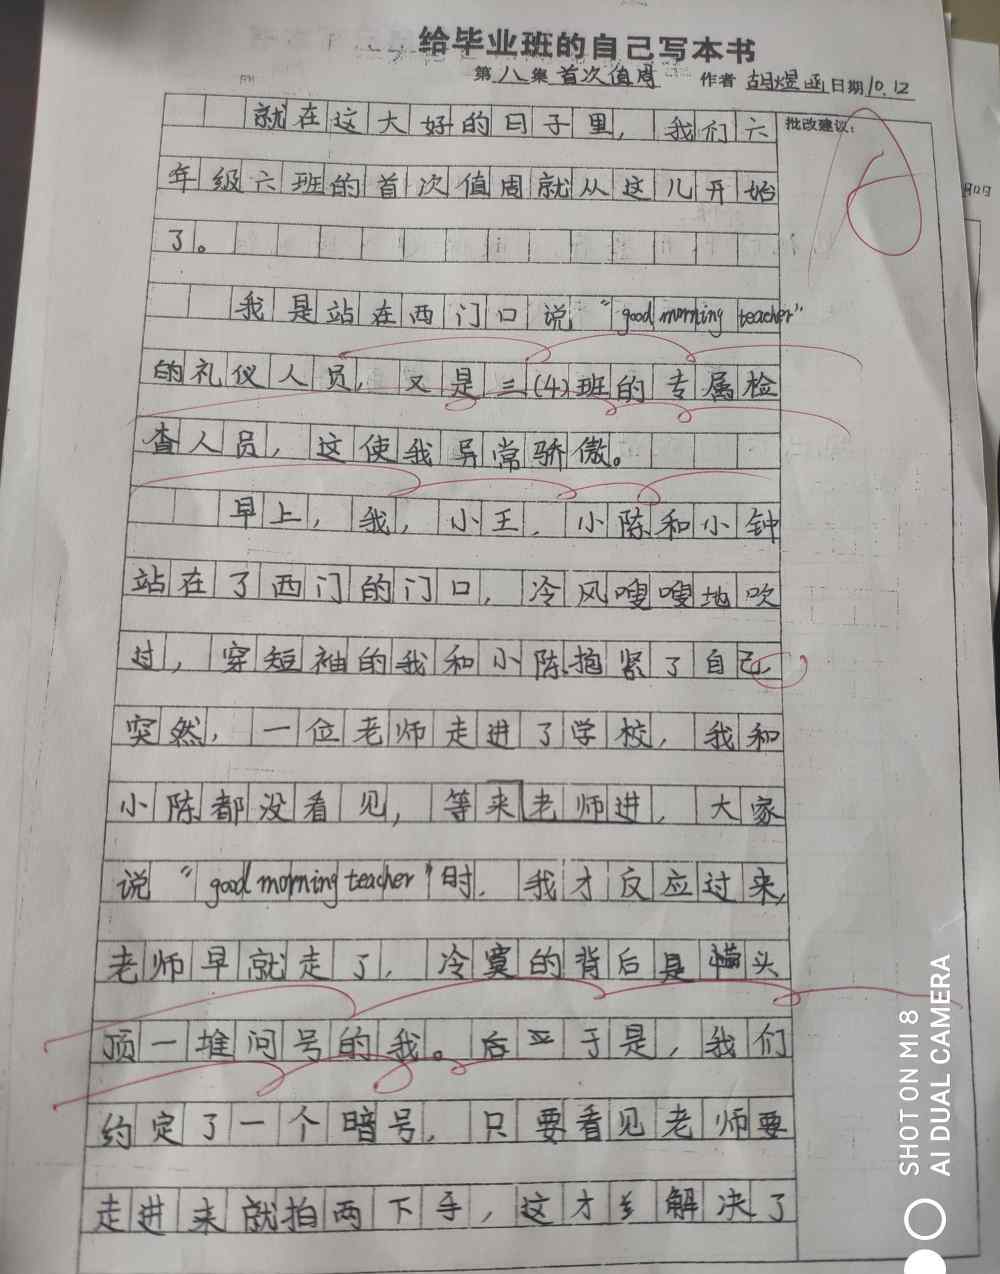 给毕业班的自己写本书
第八集 首次值周 作者 胡煜函 日期10.12
批改建议：
就在这大好的日子里，我们六
年级六班的首次值周就从这儿开始
了。
我是站在西门口说“good morning teacher”
的礼仪人员，又是三(4)班的专属检
查人员，这使我异常骄傲。
早上，我，小王，小陈和小钟
站在了西门的门口，冷风嗖嗖地吹
过，穿短袖的我和小陈抱紧了自己，
突然，一位老师走进了学校，我和
小陈都没看见，等来老师进，大家
说“good morning teacher”时，我才反应过来，
老师早就走了，冷寞的背后是懵头
顶一堆问号的我。于是，我们
约定了一个暗号，只要看见老师要
走进来就拍两下手，这才解决了
SHOT ON MI 8
AI DUAL CAMERA